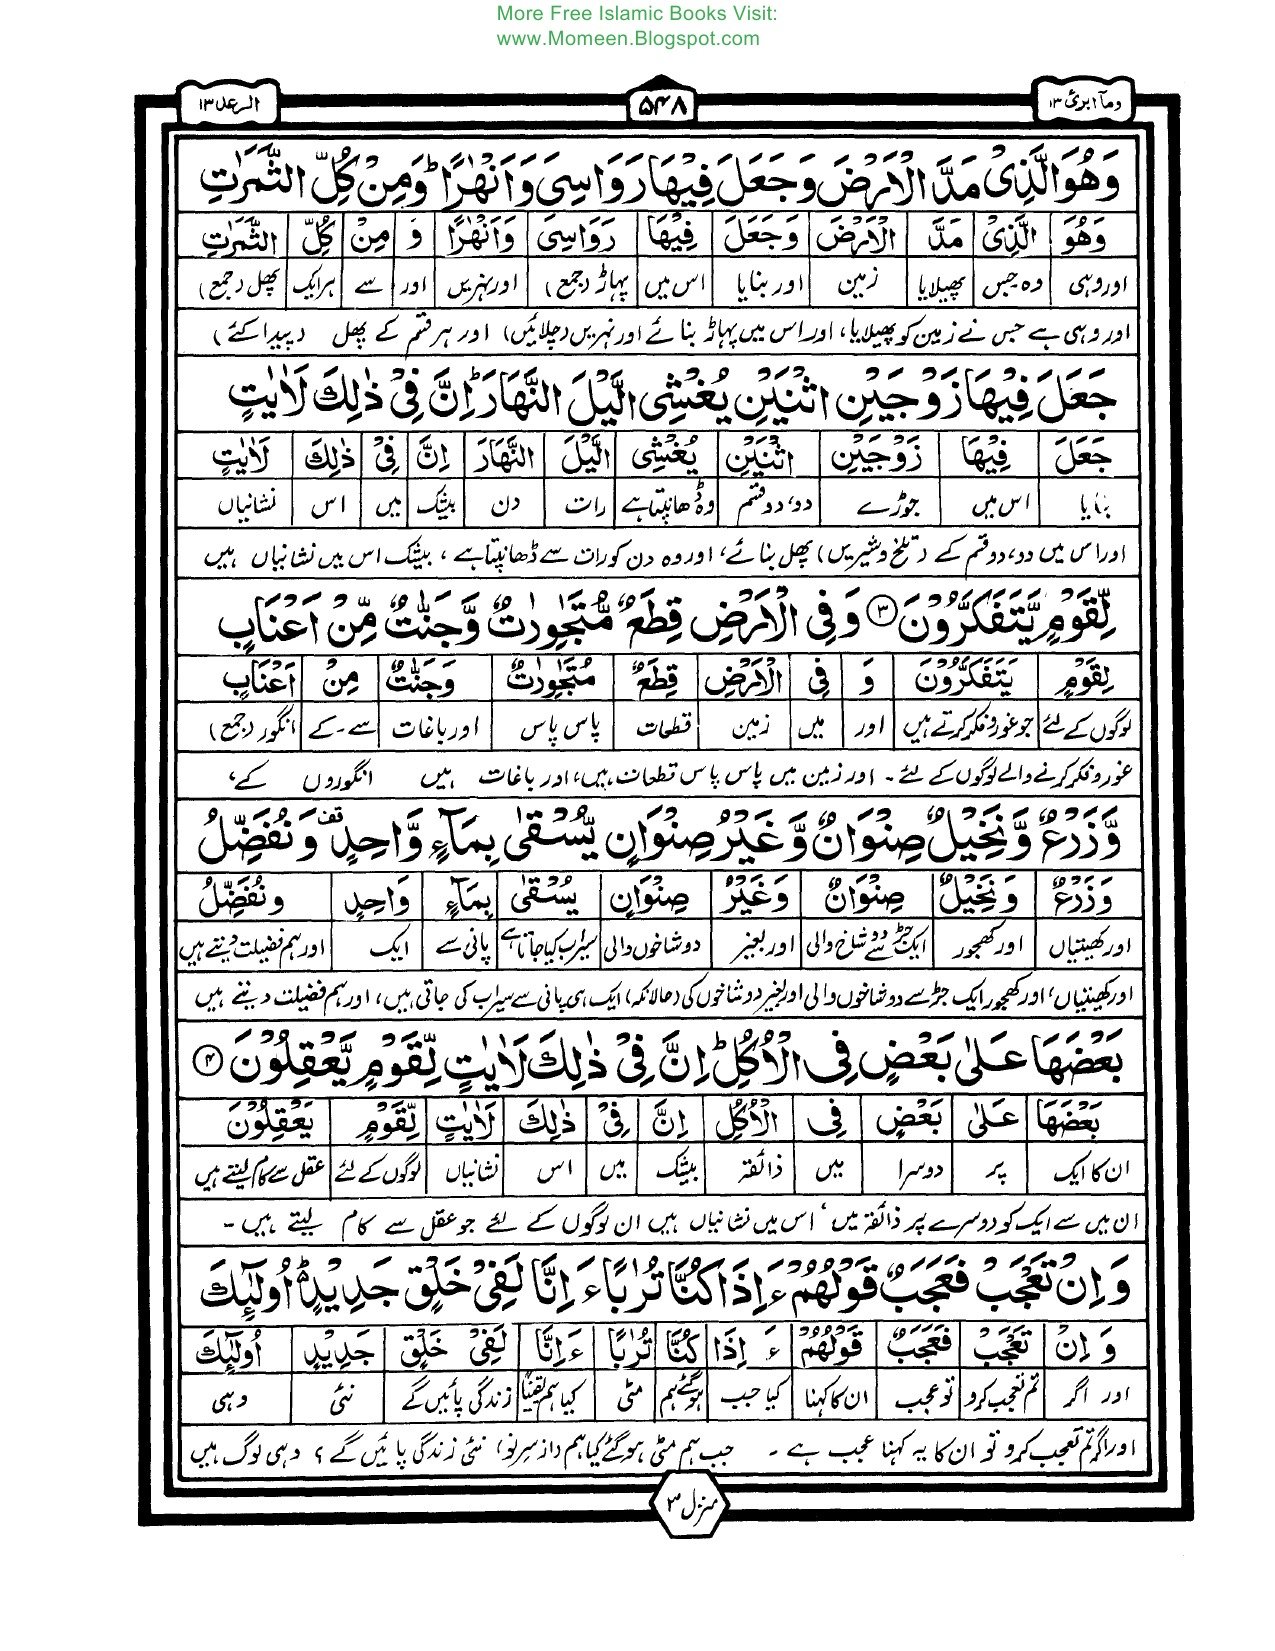 More Free Islamic Books Visit:
www.Momeen.Blogspot.com
وما ابرئ ۱۳
۵۴۸
الرعد ۱۳
وَهُوَ الَّذِىْ مَدَّ الْاَرْضَ وَجَعَلَ فِيْهَا رَوَاسِىَ وَاَنْهٰرًا ؕ وَمِنْ كُلِّ الثَّمَرٰتِ
وَهُوَ الَّذِىْ مَدَّ الْاَرْضَ وَجَعَلَ فِيْهَا رَوَاسِىَ وَاَنْهٰرًا وَ مِنْ كُلِّ الثَّمَرٰتِ
اور وہی وہ جس پھیلایا زمین اور بنایا اس میں پہاڑ (جمع) اور نہریں اور سے ہر ایک پھل (جمع)
اور وہی ہے جس نے زمین کو پھیلایا، اور اس میں پہاڑ بنائے اور نہریں (چلائیں) اور ہر قسم کے پھل (پیدا کئے)
جَعَلَ فِيْهَا زَوْجَيْنِ اثْنَيْنِ يُغْشِى الَّيْلَ النَّهَارَ ؕ اِنَّ فِىْ ذٰلِكَ لَاٰيٰتٍ
جَعَلَ فِيْهَا زَوْجَيْنِ اثْنَيْنِ يُغْشِى الَّيْلَ النَّهَارَ اِنَّ فِىْ ذٰلِكَ لَاٰيٰتٍ
بنایا اس میں جوڑے دو، دو قسم وہ ڈھانپتا ہے رات دن بیشک میں اس نشانیاں
اور اس میں دو، دو قسم کے (تلخ و شیریں) پھل بنائے، اور وہ دن کو رات سے ڈھانپتا ہے، بیشک اس میں نشانیاں ہیں
لِّقَوْمٍ يَّتَفَكَّرُوْنَ ۳ وَفِى الْاَرْضِ قِطَعٌ مُّتَجٰوِرٰتٌ وَّجَنّٰتٌ مِّنْ اَعْنَابٍ
لِقَوْمٍ يَتَفَكَّرُوْنَ وَ فِى الْاَرْضِ قِطَعٌ مُتَجٰوِرٰتٌ وَجَنّٰتٌ مِنْ اَعْنَابٍ
لوگوں کے لئے جو غور و فکر کرتے ہیں اور میں زمین قطعات پاس پاس اور باغات سے۔کے انگور (جمع)
غور و فکر کرنے والے لوگوں کے لئے۔ اور زمین میں پاس پاس قطعات ہیں، اور باغات ہیں انگوروں کے،
وَّزَرْعٌ وَّنَخِيْلٌ صِنْوَانٌ وَّغَيْرُ صِنْوَانٍ يُّسْقٰى بِمَآءٍ وَّاحِدٍ قف وَنُفَضِّلُ
وَزَرْعٌ وَنَخِيْلٌ صِنْوَانٌ وَغَيْرُ صِنْوَانٍ يُسْقٰى بِمَآءٍ وَاحِدٍ وَنُفَضِّلُ
اور کھیتیاں اور کھجور ایک جڑ سے دو شاخ والی اور بغیر دو شاخوں والی سیراب کیا جاتا ہے پانی سے ایک اور ہم فضیلت دیتے ہیں
اور کھیتیاں، اور کھجور ایک جڑ سے دو شاخوں والی اور بغیر دو شاخوں کی (حالانکہ) ایک ہی پانی سے سیراب کی جاتی ہیں، اور ہم فضیلت دیتے ہیں
بَعْضَهَا عَلٰى بَعْضٍ فِى الْاُكُلِ ؕ اِنَّ فِىْ ذٰلِكَ لَاٰيٰتٍ لِّقَوْمٍ يَّعْقِلُوْنَ ۴
بَعْضَهَا عَلٰى بَعْضٍ فِى الْاُكُلِ اِنَّ فِىْ ذٰلِكَ لَاٰيٰتٍ لِّقَوْمٍ يَعْقِلُوْنَ
ان کا ایک پر دوسرا میں ذائقہ بیشک میں اس نشانیاں لوگوں کے لئے عقل سے کام لیتے ہیں
ان میں سے ایک کو دوسرے پر ذائقہ میں، اس میں نشانیاں ہیں ان لوگوں کے لئے جو عقل سے کام لیتے ہیں۔
وَاِنْ تَعْجَبْ فَعَجَبٌ قَوْلُهُمْ ءَاِذَا كُنَّا تُرٰبًا ءَاِنَّا لَفِىْ خَلْقٍ جَدِيْدٍ ؕ اُولٰٓئِكَ
وَ اِنْ تَعْجَبْ فَعَجَبٌ قَوْلُهُمْ ءَ اِذَا كُنَّا تُرٰبًا ءَاِنَّا لَفِىْ خَلْقٍ جَدِيْدٍ اُولٰٓئِكَ
اور اگر تم تعجب کرو تو عجب ان کا کہنا کیا جب ہوگئے ہم مٹی کیا ہم یقیناً زندگی پائیں گے نئی وہی
اور اگر تم تعجب کرو تو ان کا یہ کہنا عجب ہے۔ جب ہم مٹی ہوگئے کیا ہم (از سرِ نو) نئی زندگی پائیں گے؟ وہی لوگ ہیں
منزل ۳